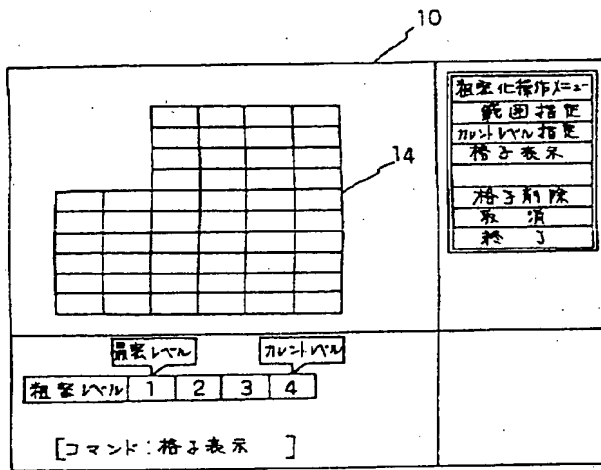 10
14
粗密化操作メニュー
範囲指定
カレントレベル指定
格子表示
格子削除
取消
終了
最密レベル
カレントレベル
粗密レベル 1 2 3 4
[コマンド:格子表示 ]